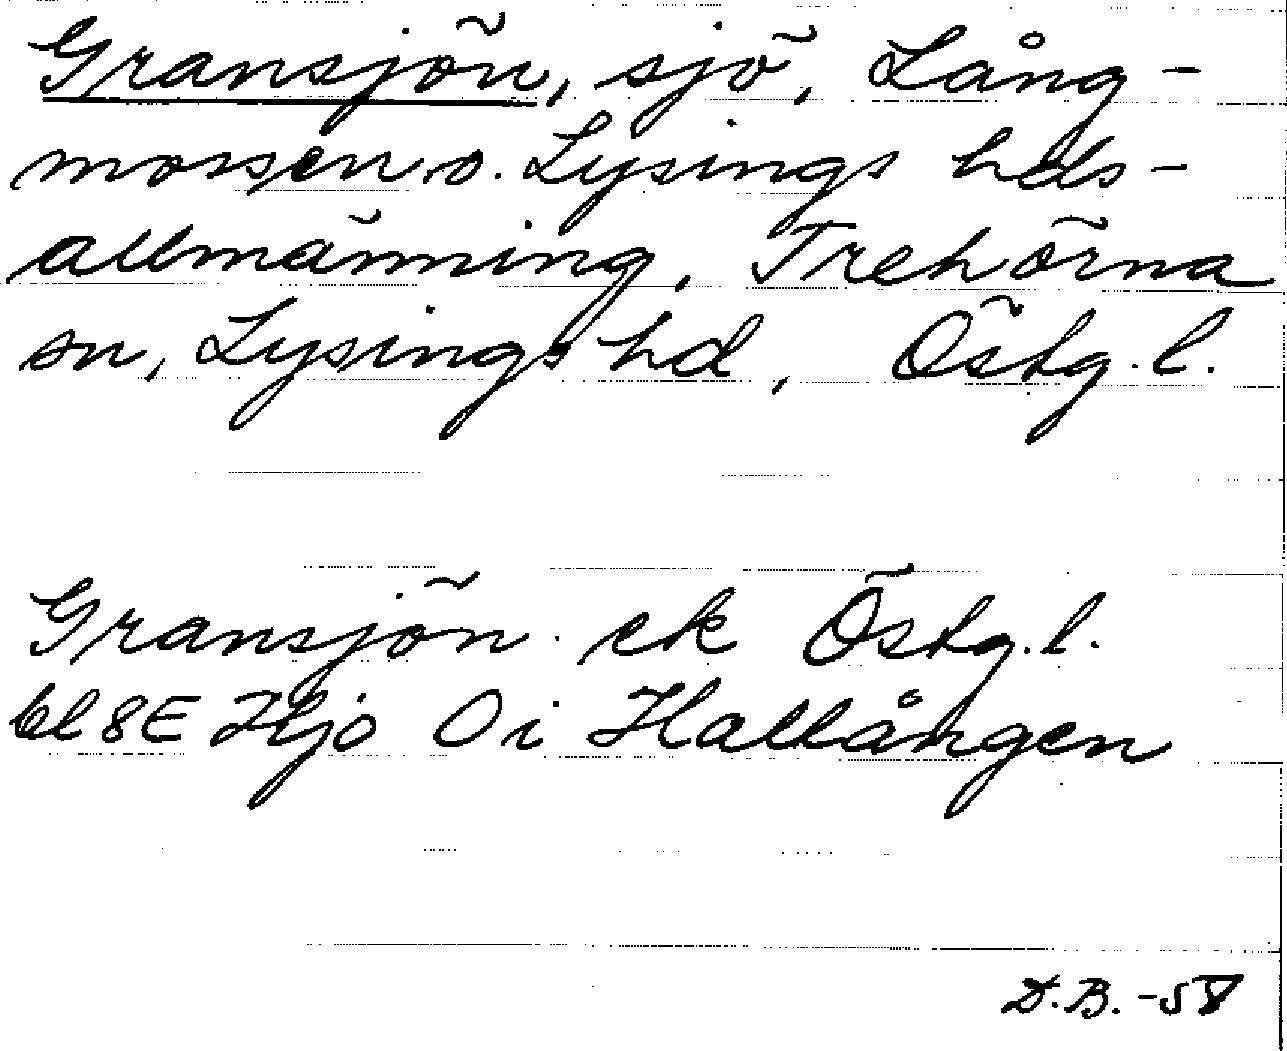 Gransjön, sjö, Lång-
mossen o. Lysings hds-
allmänning, Trehörna
sn, Lysings hd, Östg. l.
Gransjön ek Östg. l.
bl 8E Hjo Oi Hallången
D.B. -58